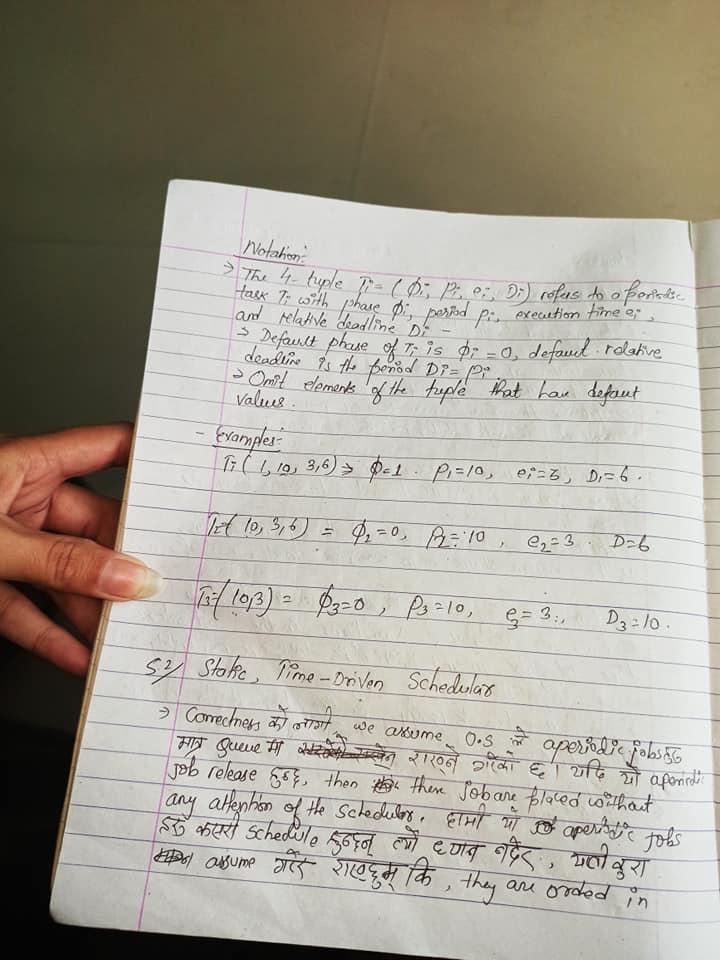 Notation:-
→ The 4-tuple Ti = (ϕi, Pi, ei, Di) refers to a periodic
task Ti with phase ϕi, period Pi, execution time ei,
and relative deadline Di -
→ Default phase of Ti is ϕi = 0, defaut relative
deadline is the period Di = Pi.
→ Omit elements of the tuple that have defaut
values.
- Examples:-
Ti( 1, 10, 3,6) → ϕ=1 . P1=10, ei=3, D1=6 .
T2=( 10, 3,6) = ϕ2=0, P2=10 , e2=3 . D=6
T3=( 10,3) = ϕ3=0 , P3=10, e3= 3., D3=10 .
5.2/ Static, Time-Driven Schedular
→ Correctness को लागी, we assume O.S ले aperiodic jobs हरु
मात्र Queue मा राख्ने गरेको छ । यदि यो aperiodic
job release हुन्छ, then these job are placed without
any attention of the schedular. हामी यो aperiodic jobs
हरु कसरी schedule हुन्छन् त्यो ध्यान नदिई, यती कुरा
assume गरेर राख्छुम् कि, they are orded in